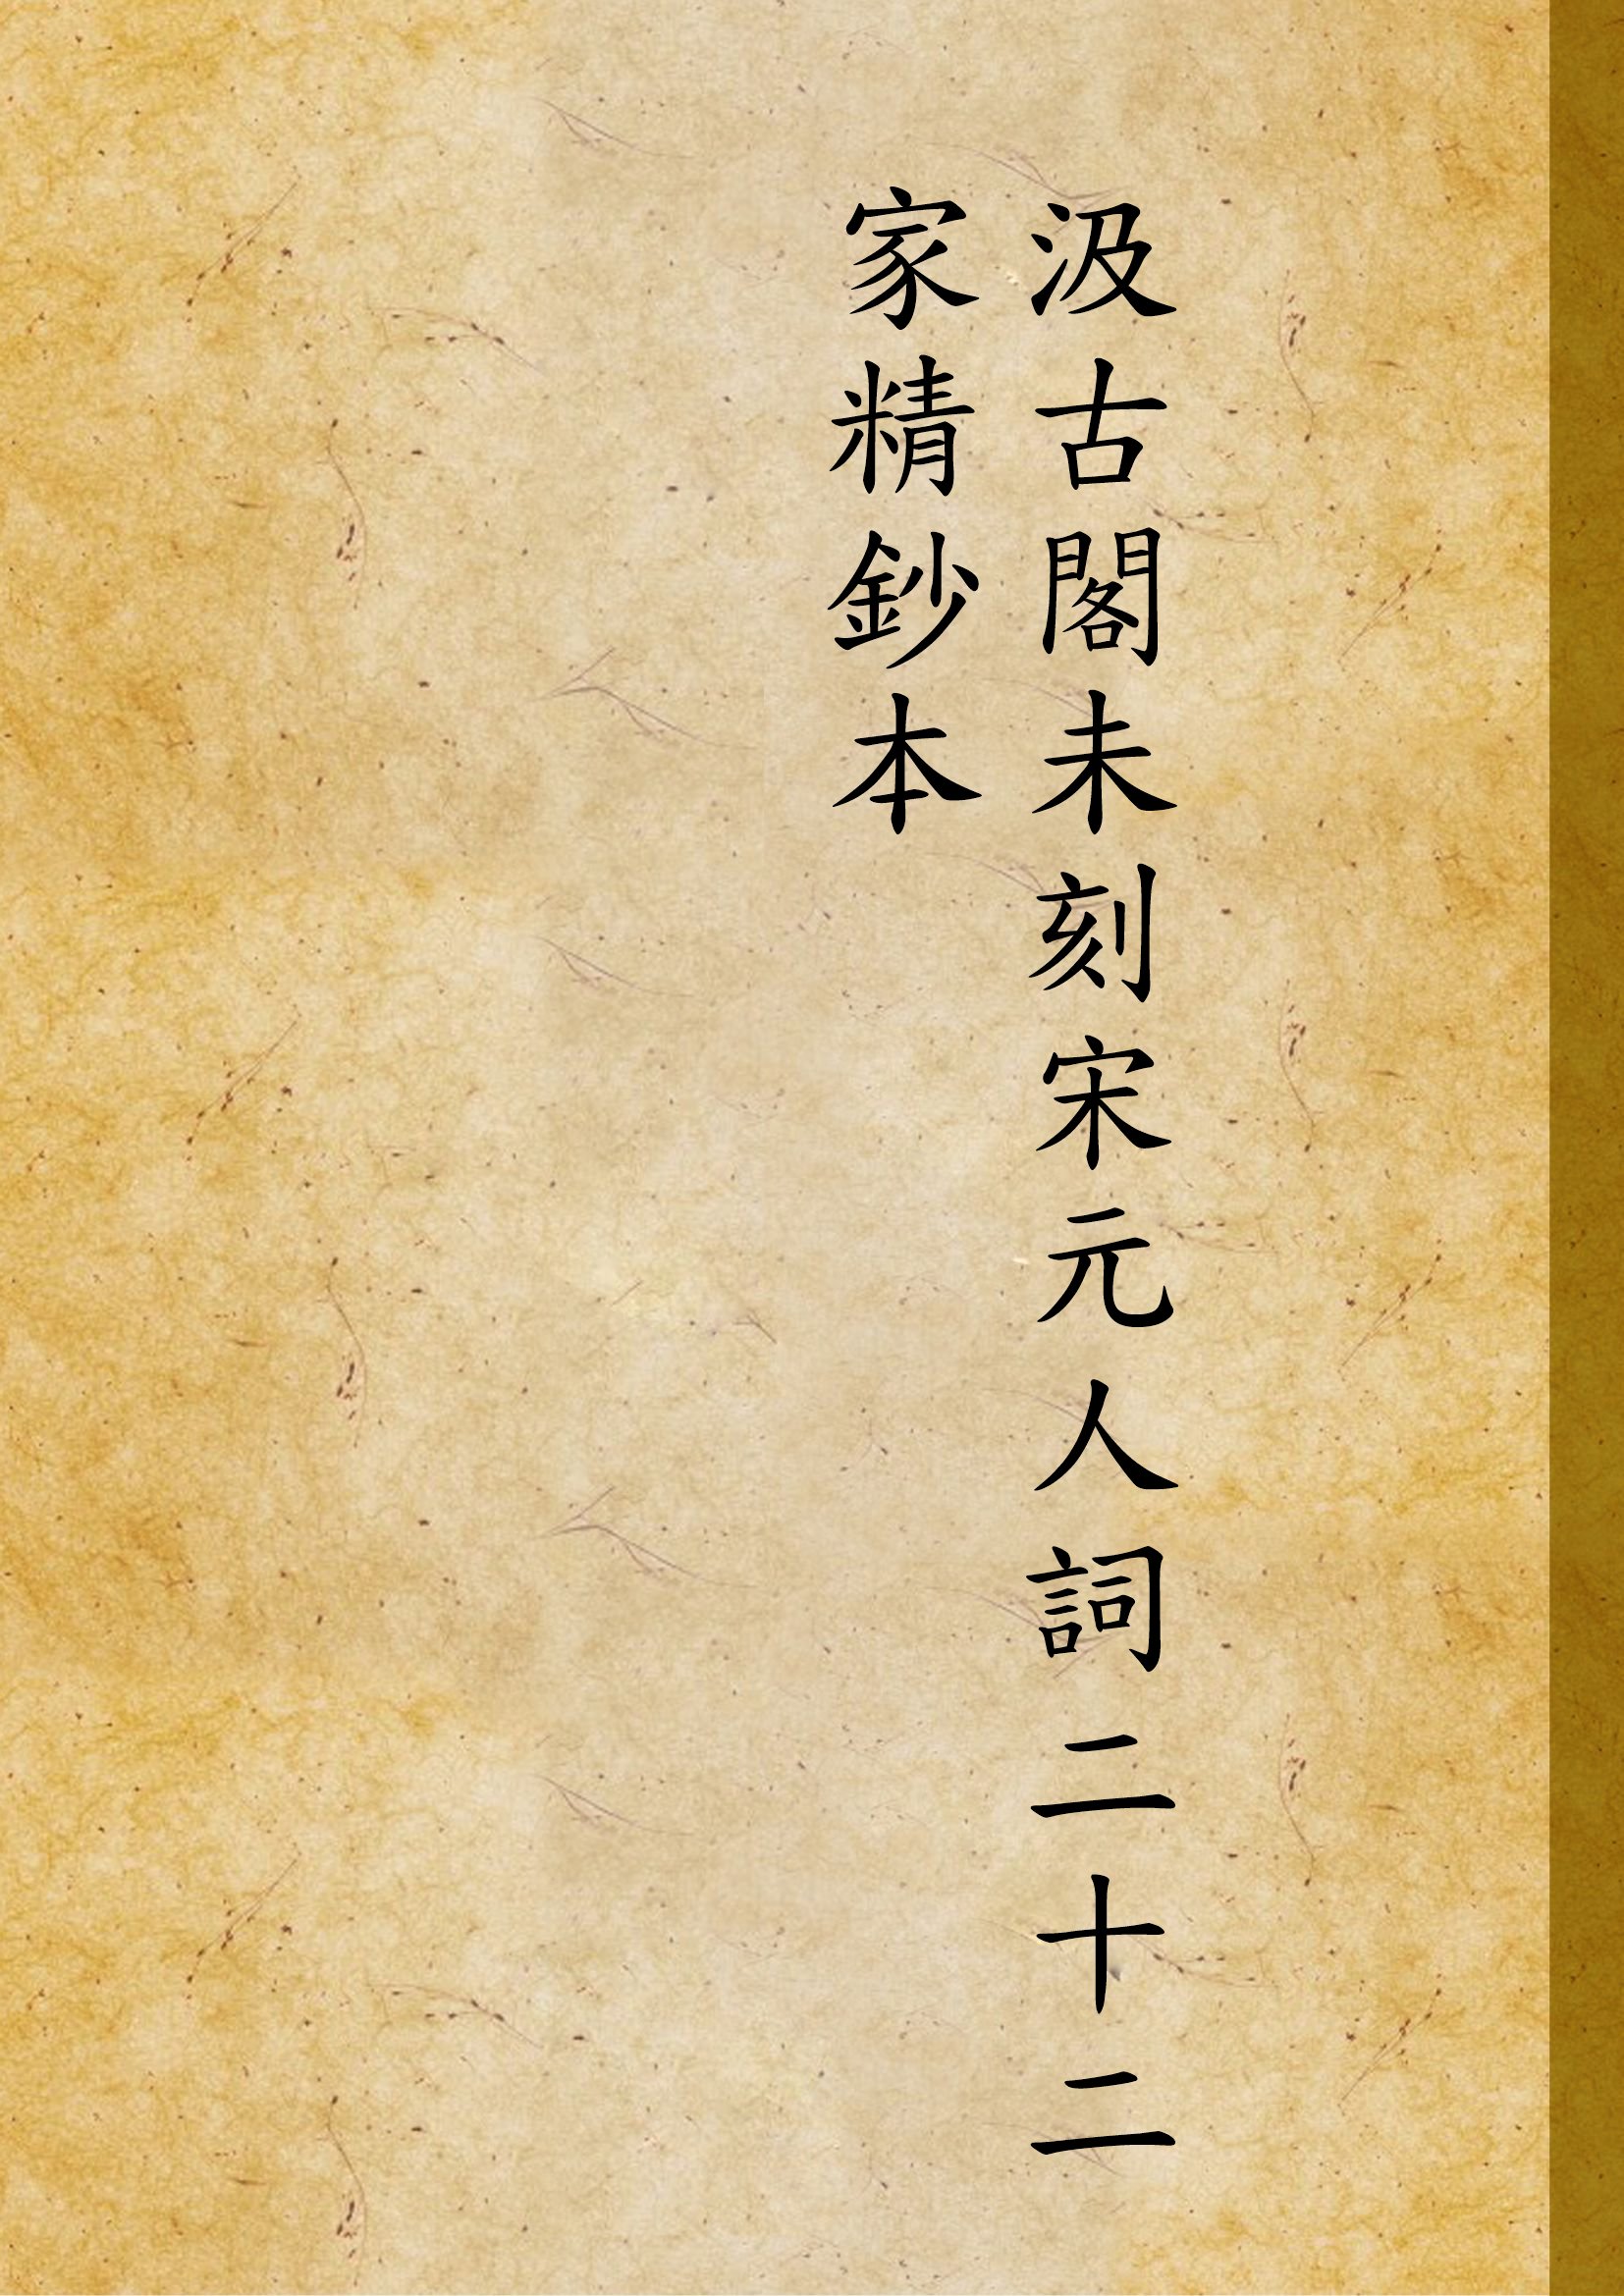 汲古閣未刻宋元人詞二十二
家精鈔本